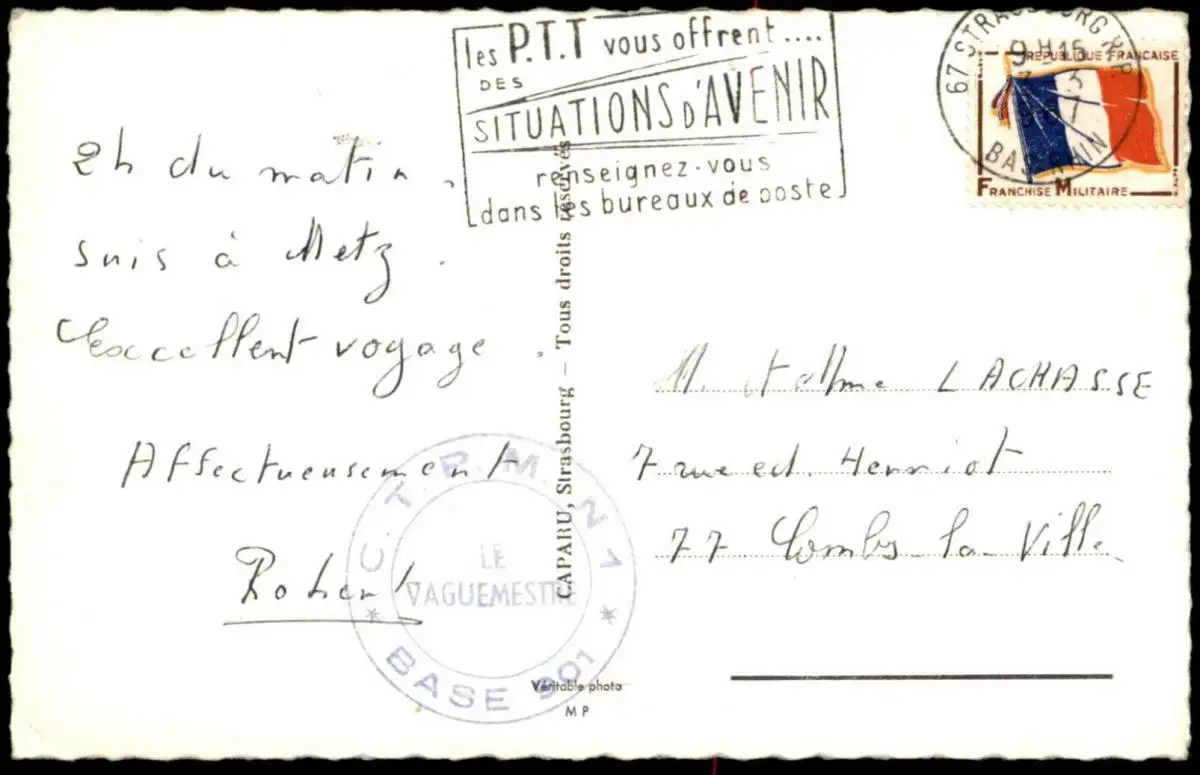 les P.T.T vous offrent....
DES
SITUATIONS D'AVENIR
renseignez-vous
dans les bureaux de poste
67 STRASBOURG R.P
9H15
BAS-RHIN
RÉPUBLIQUE FRANÇAISE
FRANCHISE MILITAIRE
2h du matin.
suis à Metz.
Excellent voyage.
Affectueusement
Robert
C.T.P.M. N 1
LE
VAGUEMESTRE
* BASE 901 *
CAPARU, Strasbourg – Tous droits réservés
M. et Mme LACHASSE
7 rue ed. Henriot
77. Combs-la-Ville
Véritable photo
MP